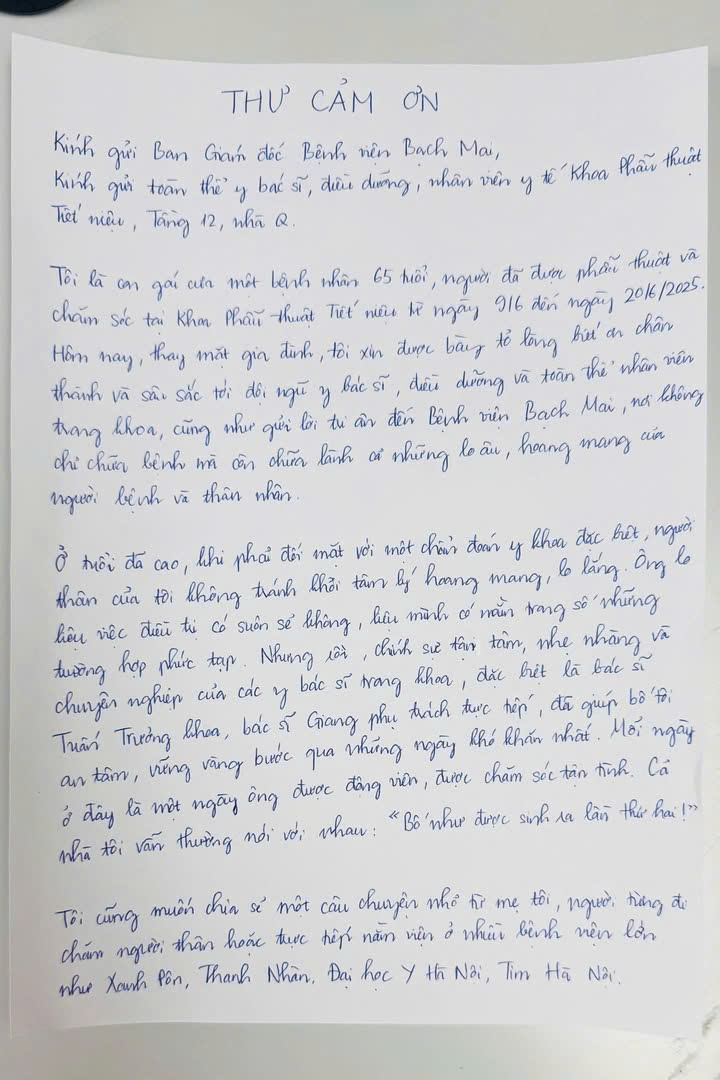 THƯ CẢM ƠN
Kính gửi Ban Giám đốc Bệnh viện Bạch Mai,
Kính gửi toàn thể y bác sĩ, điều dưỡng, nhân viên y tế Khoa Phẫu thuật
Tiết niệu, Tầng 12, nhà Q.
Tôi là con gái của một bệnh nhân 65 tuổi, người đã được phẫu thuật và
chăm sóc tại Khoa Phẫu thuật Tiết niệu từ ngày 9/6 đến ngày 20/6/2025.
Hôm nay, thay mặt gia đình, tôi xin được bày tỏ lòng biết ơn chân
thành và sâu sắc tới đội ngũ y bác sĩ, điều dưỡng và toàn thể nhân viên
trong khoa, cũng như gửi lời tri ân đến Bệnh viện Bạch Mai, nơi không
chỉ chữa bệnh mà còn chữa lành cả những lo âu, hoang mang của
người bệnh và thân nhân.
Ở tuổi đã cao, khi phải đối mặt với một chẩn đoán y khoa đặc biệt, người
thân của tôi không tránh khỏi tâm lý hoang mang, lo lắng. Ông lo
liệu việc điều trị có suôn sẻ không, liệu mình có nằm trong số những
trường hợp phức tạp. Nhưng rồi, chính sự tận tâm, nhẹ nhàng và
chuyên nghiệp của các y bác sĩ trong khoa, đặc biệt là bác sĩ
Tuấn Trưởng khoa, bác sĩ Giang phụ trách trực tiếp, đã giúp bố tôi
an tâm, vững vàng bước qua những ngày khó khăn nhất. Mỗi ngày
ở đây là một ngày ông được động viên, được chăm sóc tận tình. Cả
nhà tôi vẫn thường nói với nhau: "Bố như được sinh ra lần thứ hai!"
Tôi cũng muốn chia sẻ một câu chuyện nhỏ từ mẹ tôi, người từng đi
chăm người thân hoặc trực tiếp nằm viện ở nhiều bệnh viện lớn
như Xanh Pôn, Thanh Nhàn, Đại học Y Hà Nội, Tim Hà Nội.